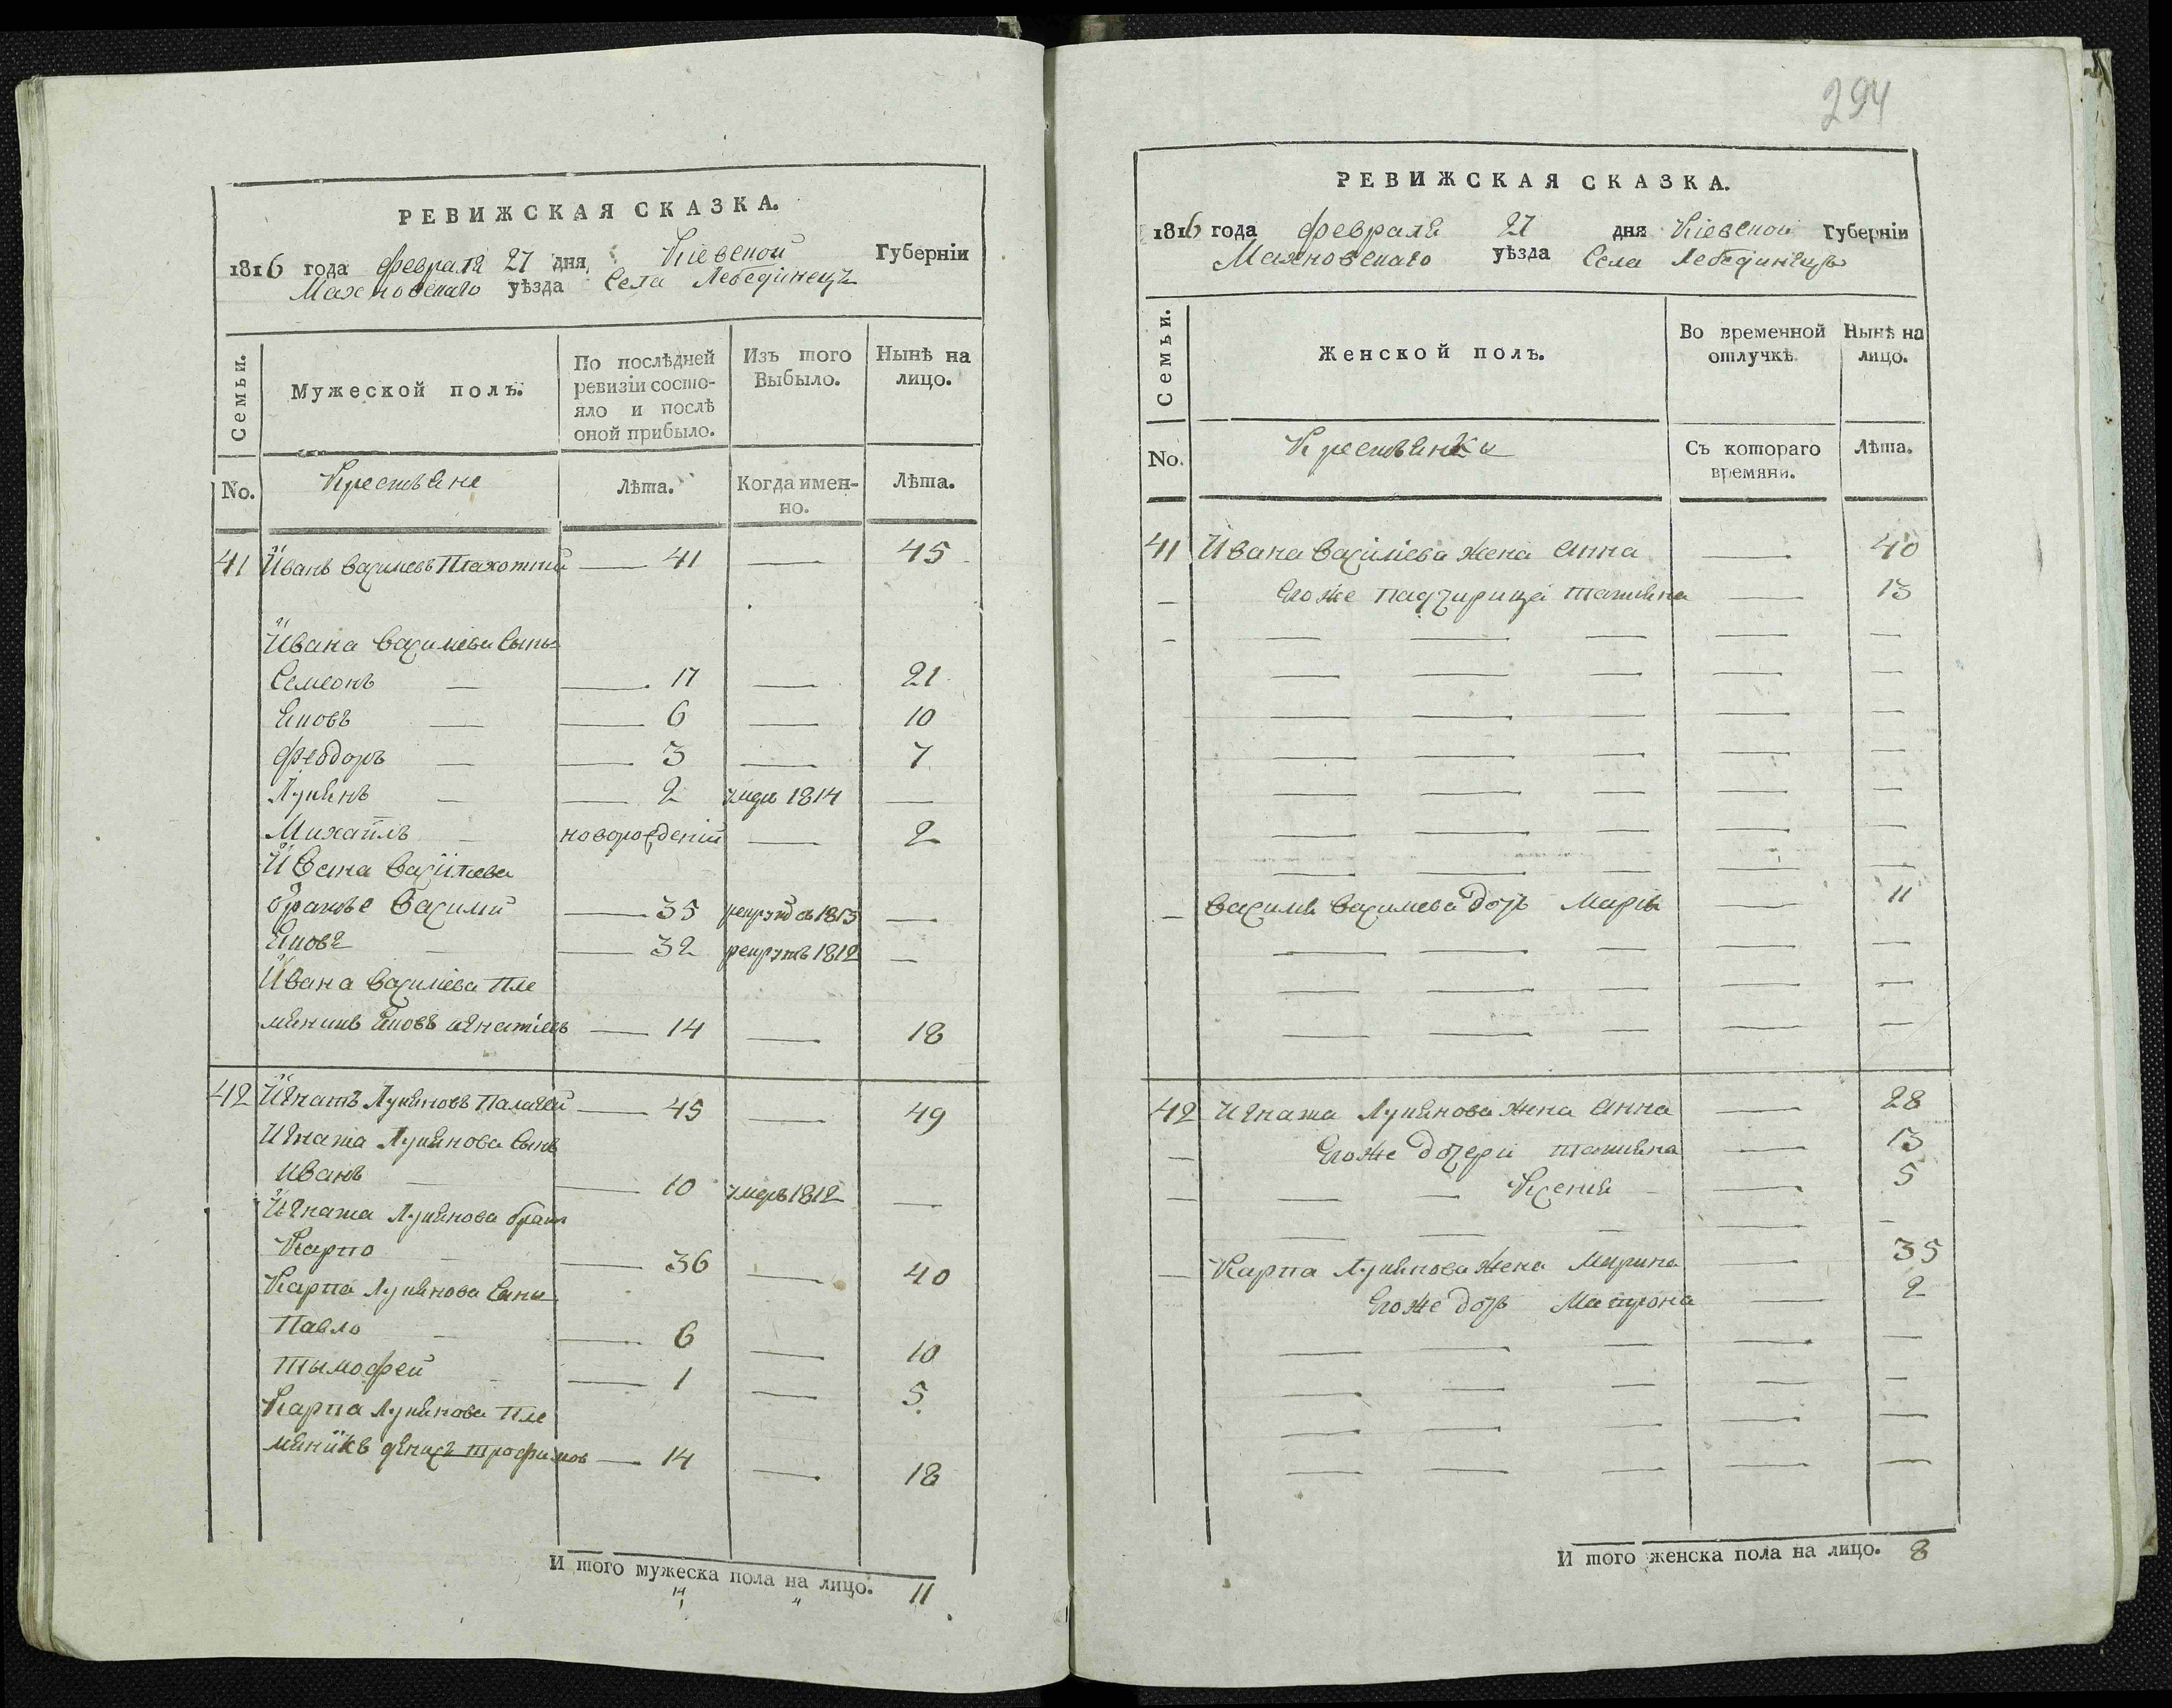 РЕВИЖСКАЯ СКАЗКА.
1816 года февраля 27 дня Кіевской Губерніи
Махновскаго уѣзда Села Лебединецъ
Семьи.
Мужеской полъ.
По послѣдней ревизіи состо-
яло и послѣ
оной прибыло.
Изъ того
Выбыло.
Нынѣ на
лицо.
No.
Крестьяне
Лѣта.
Когда имен-
но.
Лѣта.
41 Иванъ Василіевъ Плахотний 41 45
Ивана Василіева Сынъ
Семеонъ 17 21
Яковъ 6 10
Феодоръ 3 7
Лукянъ 2 умре 1814
Михаилъ новорожденій 2
Ивана Василіева
братье Василій 35 1813
Яковъ 32 рекрутъ 1812
Ивана Василіева Пле
мянникъ Яковъ Игнатіевъ 14 18
42 Игнатъ Лукяновъ 45 49
Игната Лукянова Сынъ
Иванъ 10 умеръ 1812
Игната Лукянова братъ
Карпо 36 40
Карпа Лукянова Сыны
Павло 6 10
Тымофей 1 5
Карпа Лукянова Пле
мяникъ Денисъ Трофимов 14 18
И того мужеска пола на лицо. 11
294
РЕВИЖСКАЯ СКАЗКА.
1816 года февраля 27 дня Кіевской Губерніи
Махновскаго уѣзда Села Лебединецъ
Семьи.
Женской полъ.
Во временной
отлучкѣ
Нынѣ на
лицо.
No.
Крестьянки
Съ котораго
времяни.
Лѣта.
41 Ивана Василіева жена Анна 40
Егоже падчирица Татияна 13
Василия Василіева дочь Мария 11
42 Игната Лукянова жена Анна 28
Егоже дочери Татияна 13
Ксения 5
Карпа Лукянова жена Марина 35
Егоже дочь Матрона 2
И того женска пола на лицо. 8